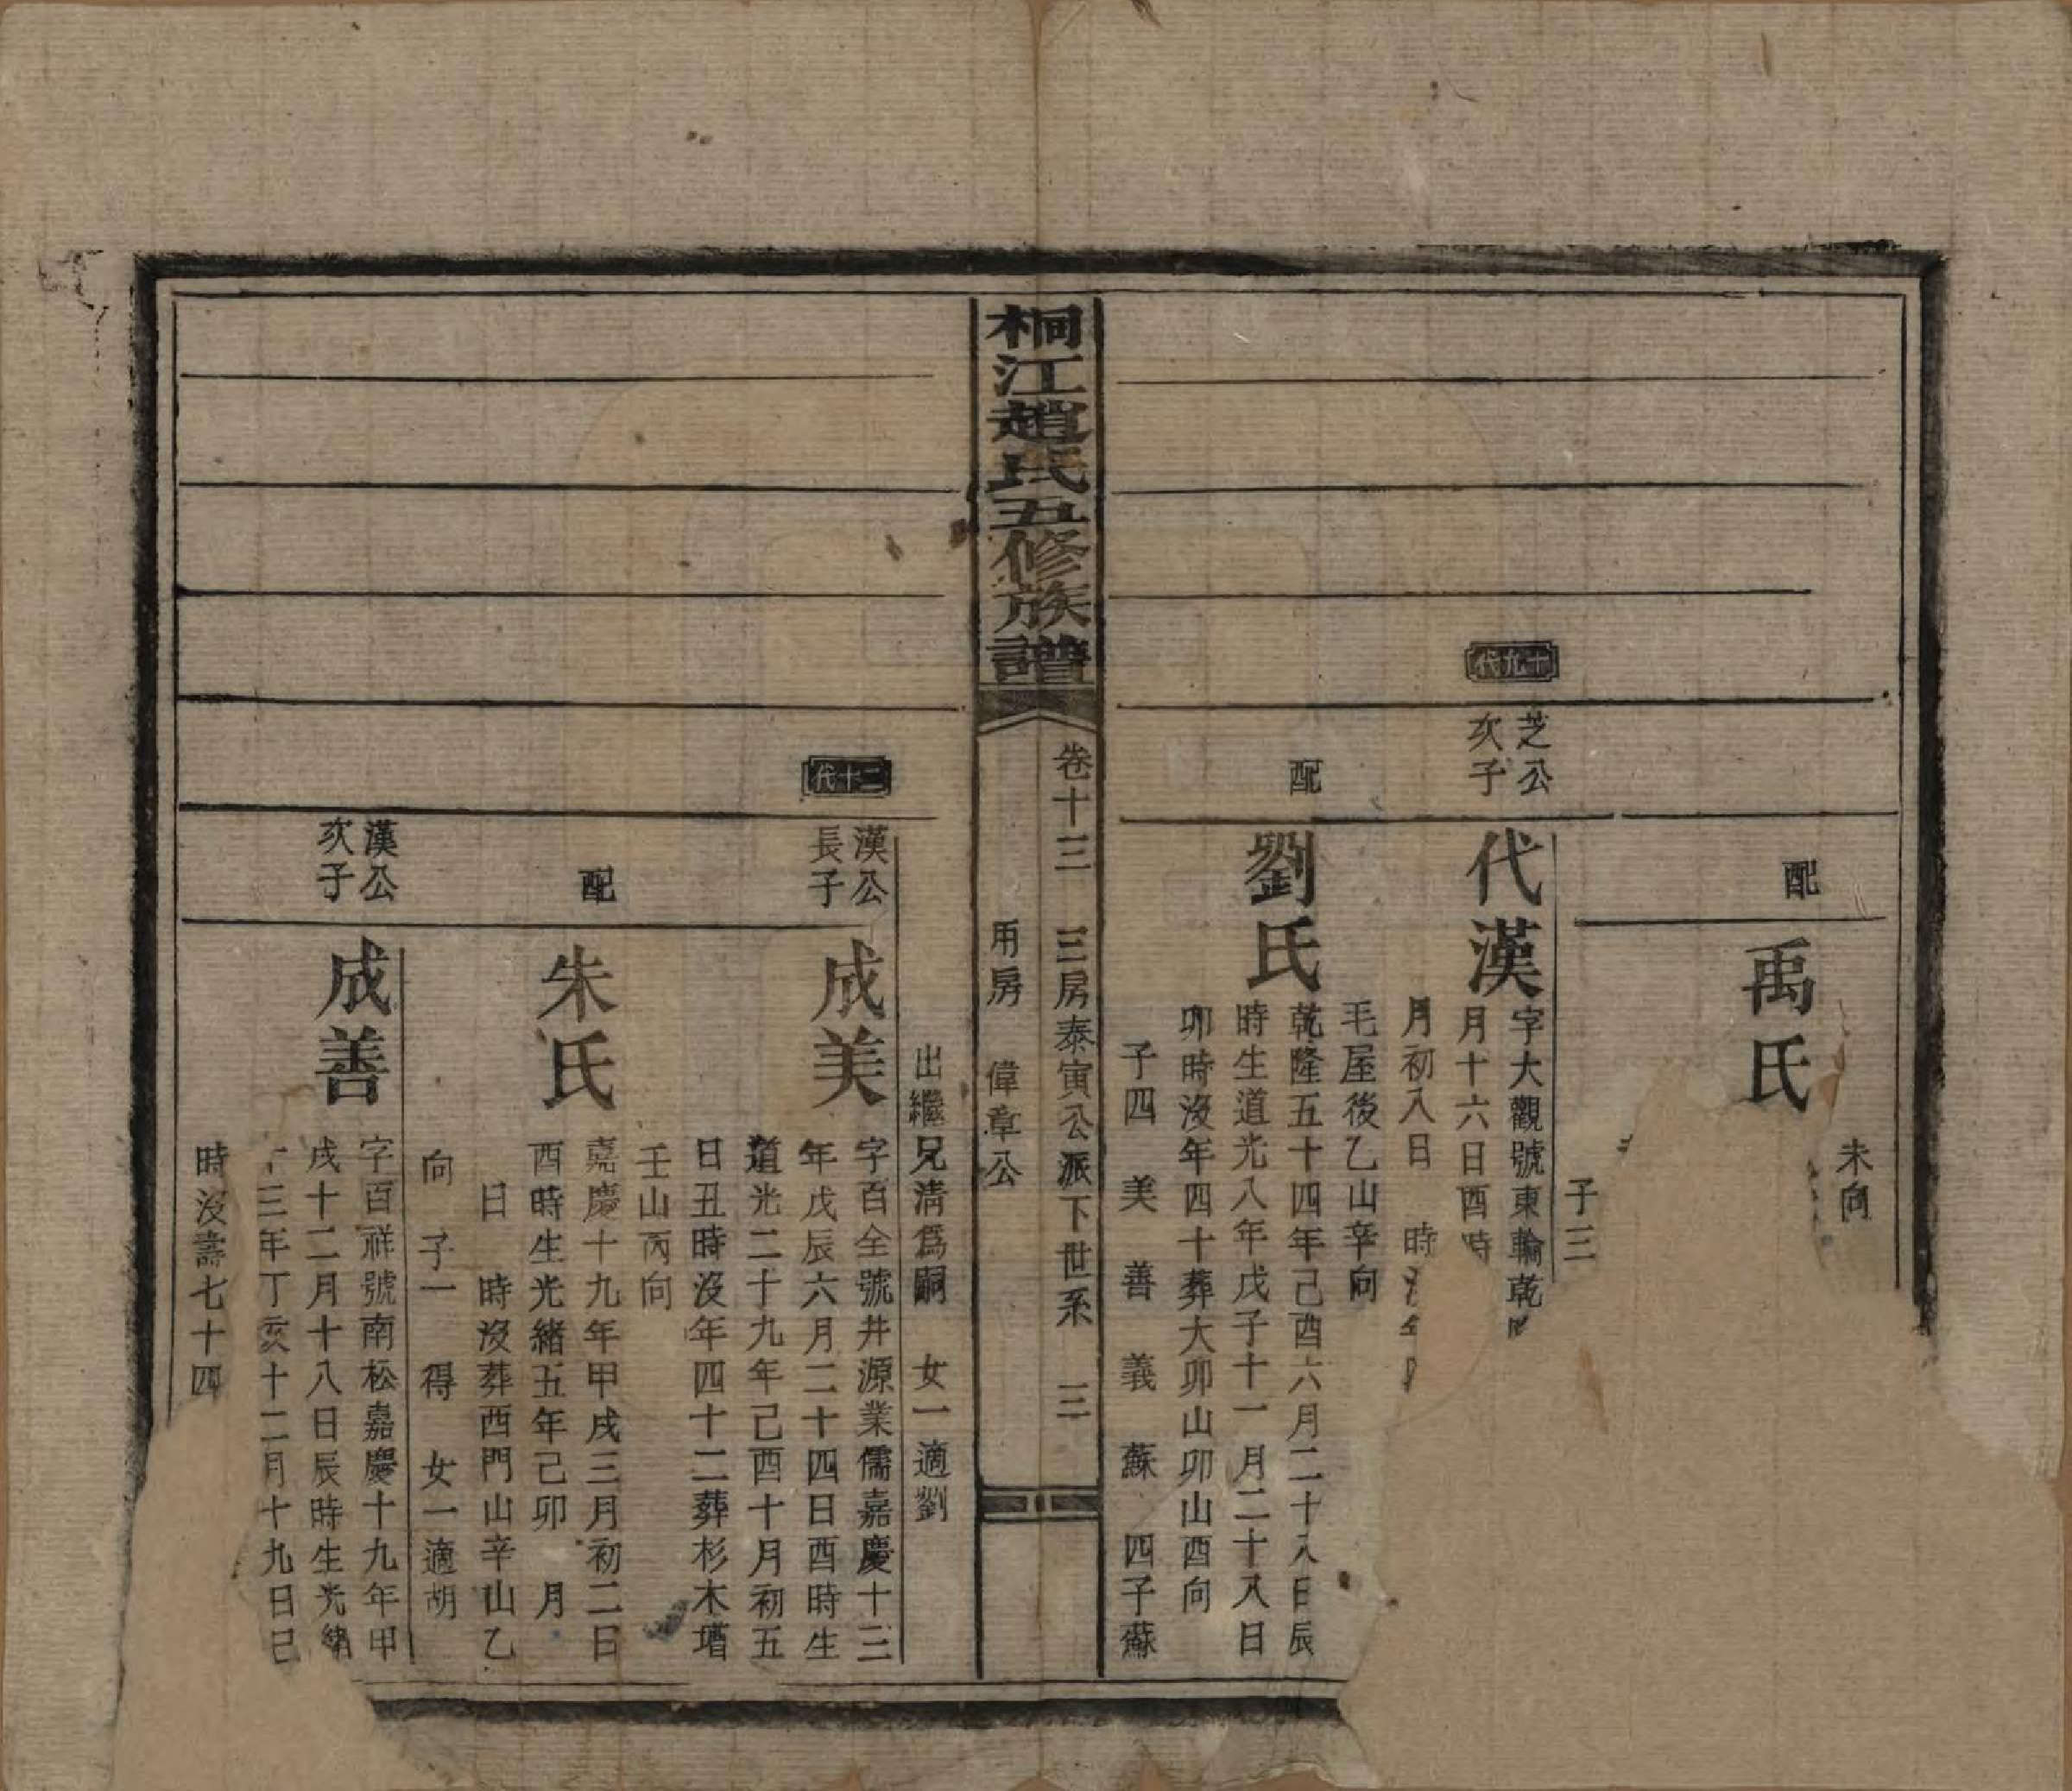 未向
配
禹氏
子三
十九代
芝公
次子
代漢
字大觀號東輪乾
月十六日酉時
月初八日 時沒年
毛屋後乙山辛向
配
劉氏
乾隆五十四年己酉六月二十八日辰
時生道光八年戊子十一月二十八日
卯時沒年四十葬大卯山卯山酉向
子四 美 善 義 蘇 四子蘇
桐江趙氏五修族譜
卷十三 三房泰寅公派下世系 三
用房 偉章公
出繼兄清爲嗣 女一適劉
二十代
漢公
長子
成美
字百全號井源業儒嘉慶十三
年戊辰六月二十四日酉時生
道光二十九年己酉十月初五
日丑時沒年四十二葬杉木塘
壬山丙向
配
朱氏
嘉慶十九年甲戌三月初二日
酉時生光緒五年己卯 月
日 時沒葬西門山辛山乙
向 子一 得 女一適胡
漢公
次子
成善
字百祥號南松嘉慶十九年甲
戌十二月十八日辰時生光緒
十三年丁亥十二月十九日巳
時沒壽七十四